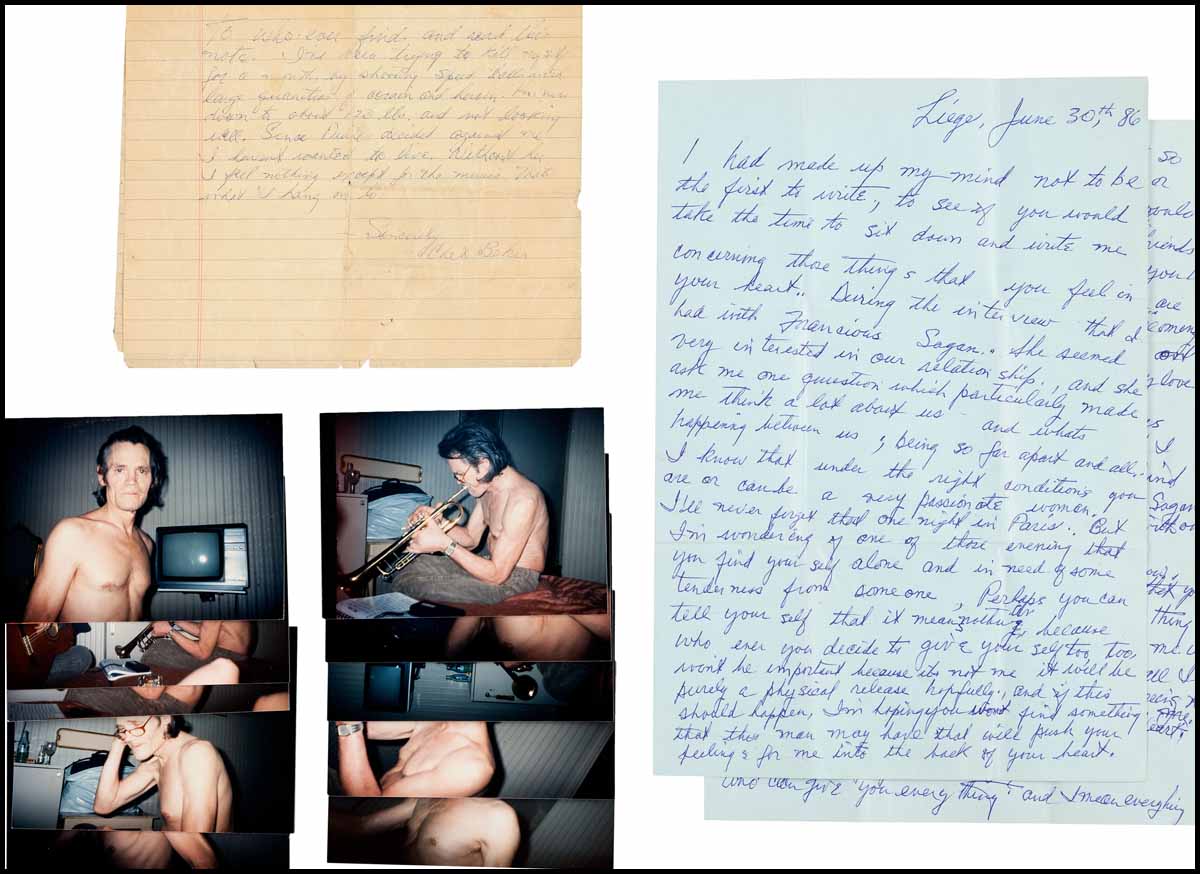 To who ever find, and read this
note. I've been trying to kill myself
for a month, by shooting speed balls with
large quantities of cocain and heroin. I'm now
down to about 123 lbs. and not looking
well. Since Diane decided against me
I havent wanted to live. Without her
I feel nothing except for the music. That's
what I hang on to.
Sincerely
Chet Baker
Liége, June 30,th 86
I had made up my mind not to be
the first to write, to see if you would
take the time to sit down and write me
concerning those things that you feel in
your heart.. During the interview that I
had with Francious Sagan.. She seemed
very interested in our relationship., and she
ask me one question which particularily made
me think a lot about us - and whats
happening between us, being so far apart and all..
I know that under the right conditions you
are or can be a very passionate woman.
I'll never forget that one night in Paris. But
I'm wondering if one of those evening that
you find your self alone and in need of some
tenderness from someone, Perhaps you can
tell your self that it means nothing, because
who ever you decide to give your self too too,
won't be important because its not me it will be
purely a physical release hopfully., and if this
should happen, I'm hoping you wont find something
that this man may have that will push your
feelings for me into the back of your heart.
who can give "you every thing" and I mean everything
so
or
would
friends
you
are
women
love
I
and
Sagan
thing